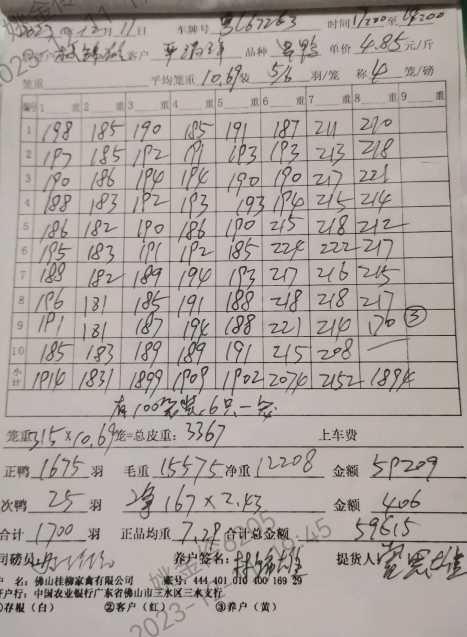 2023年12月11日 车牌号 时间 1200至
客户 品种 单价 4.85元/斤
笼重 平均笼重10.69装 5/6 羽/笼 称 4 笼/磅
编号 1 重 2 重 3 重 4 重 5 重 6 重 7 重 8 重 9 重
1 198 185 190 185 191 187 211 210
2 197 185 192 191 193 193 213 218
3 190 186 194 194 190 190 217 221
4 188 183 192 193 193 194 215 214
5 186 182 190 186 190 215 218 212
6 195 183 191 192 185 224 222 217
7 188 182 189 194 193 217 216 215
8 196 181 185 191 188 218 218 217
9 191 181 187 194 188 221 214 170 ③
10 185 183 189 189 191 215 208
小计 1914 1831 1899 1909 1902 2074 2152 1894
有100笼装6只一笼
笼重315×10.69笼=总皮重:3367 上车费
正鸭 1675 羽 毛重 15575 净重 12208 金额 59209
次鸭 25 羽 净167×2.43 金额 406
合计 1700 羽 正品均重 7.28 合计总金额 59615
司磅员 养户签名: 提货人
户 名:佛山桂柳家禽有限公司 账号:444 401 010 400 169 29
开户行:中国农业银行广东省佛山市三水区三水支行
①存根(白) ②客户(红) ③养户(黄)